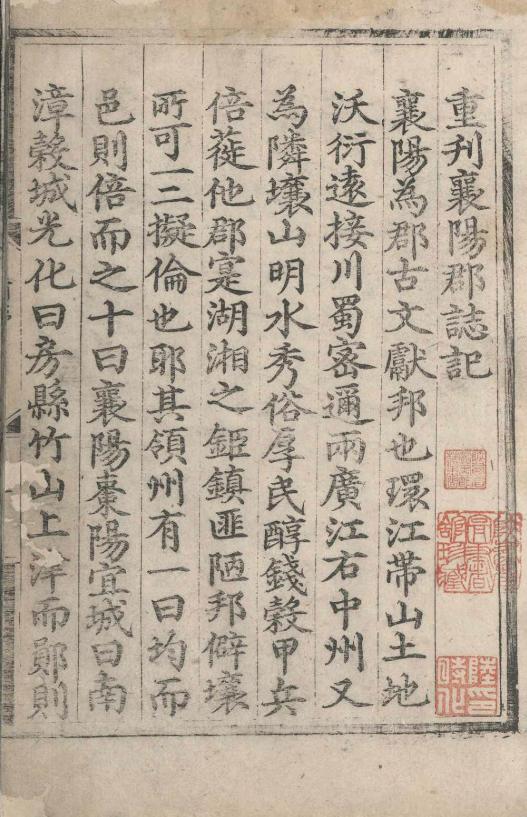 重刊襄陽郡誌記
襄陽為郡古文獻邦也環江帶山土地
沃衍遠接川蜀密邇兩廣江右中州又
為隣壤山明水秀俗厚民醇錢穀甲兵
倍蓰他郡寔湖湘之鉅鎮匪陋邦僻壤
所可一三擬倫也耶其領州有一曰均而
邑則倍而之十曰襄陽棗陽宜城曰南
漳穀城光化曰房縣竹山上津而鄖則